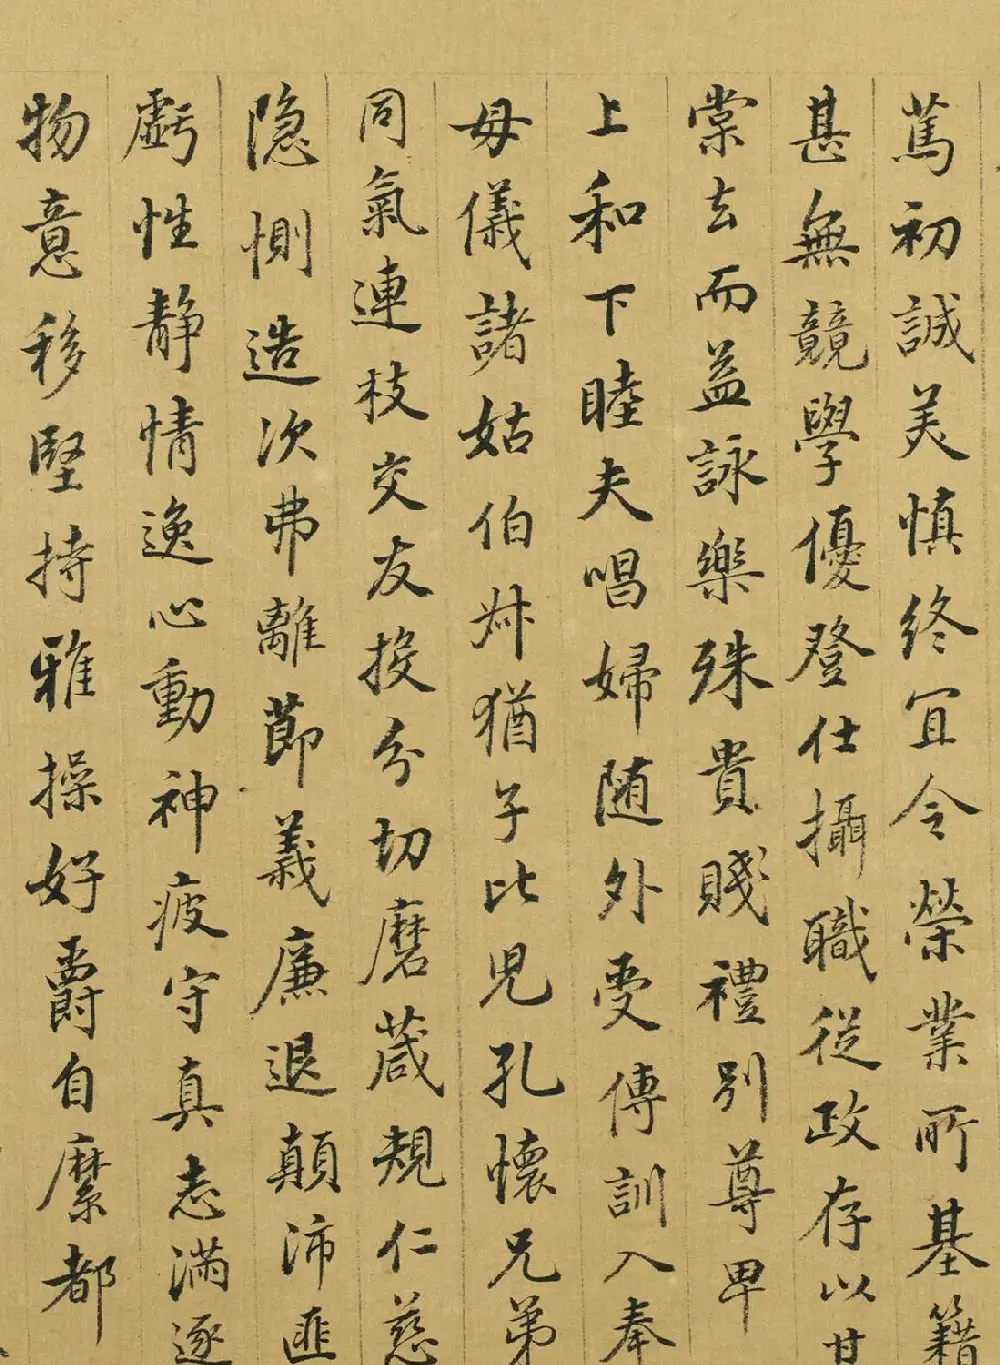 篤初誠美慎終宜令榮業所基籍
甚無競學優登仕攝職從政存以甘
棠去而益詠樂殊貴賤禮別尊卑
上和下睦夫唱婦随外受傅訓入奉
母儀諸姑伯叔猶子比兒孔懷兄弟
同氣連枝交友投分切磨箴規仁慈
隐惻造次弗離節義廉退顛沛匪
虧性静情逸心動神疲守真志滿逐
物意移堅持雅操好爵自縻都